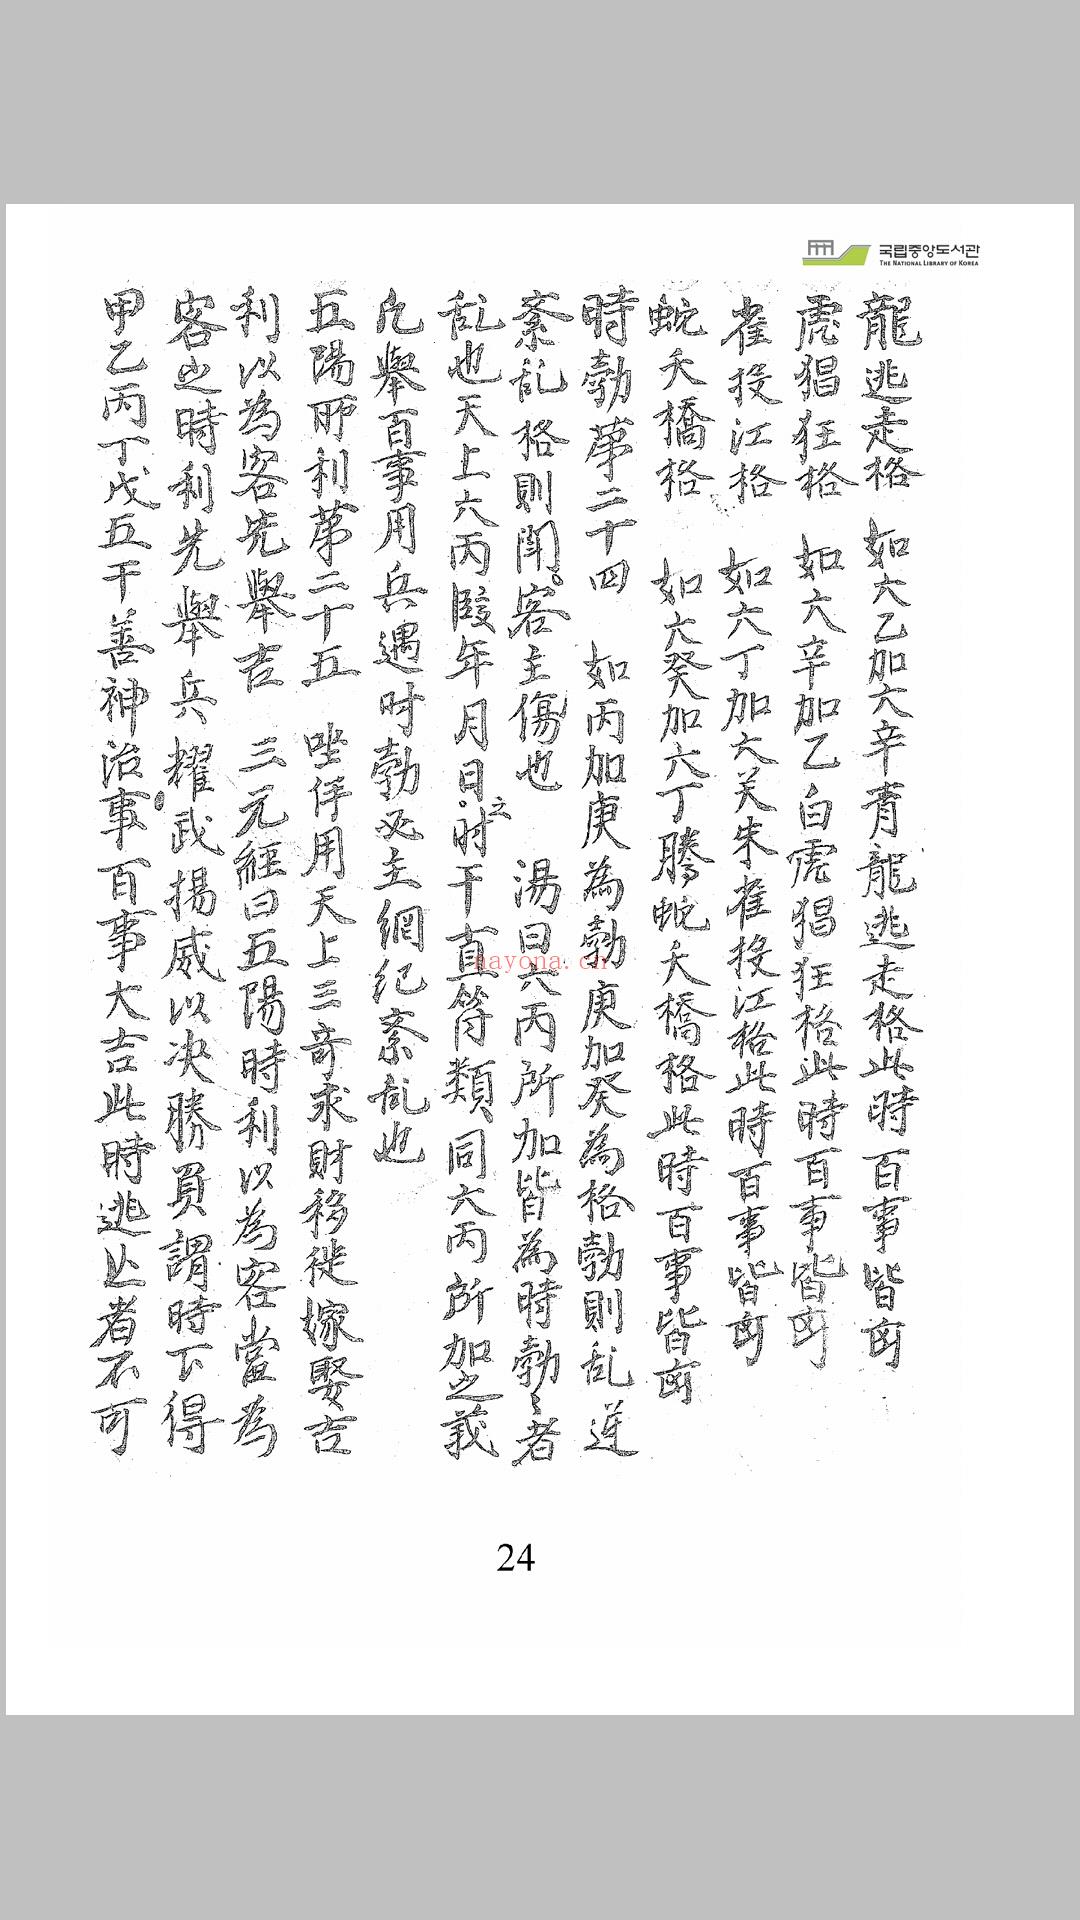 국립중앙도서관
THE NATIONAL LIBRARY OF KOREA
龍逃走格 如六乙加六辛青龍逃走格此時百事皆凶
虎猖狂格 如六辛加乙白虎猖狂格此時百事皆凶
雀投江格 如六丁加六癸朱雀投江格此時百事皆凶
蛇夭橋格 如六癸加六丁騰蛇夭橋格此時百事皆凶
時勃第二十四 如丙加庚為勃庚加癸為格勃則乱逆
紊乱格則鬪客主傷也 湯曰六丙所加皆為時勃〻者
乱也天上六丙叚年月日之时干直符類同六丙所加之義
凡舉百事用兵遇时勃必主網紀紊乱也
五陽所利第二十五 唑俘用天上三奇求財移徙嫁娶吉
利以為客先舉吉 三元經曰五陽時利以為客當為
客之時利先舉兵耀武揚威以决勝負謂時下得
甲乙丙丁戊五干善神治事百事大吉此時逃亡者不可
nayona.cn
24